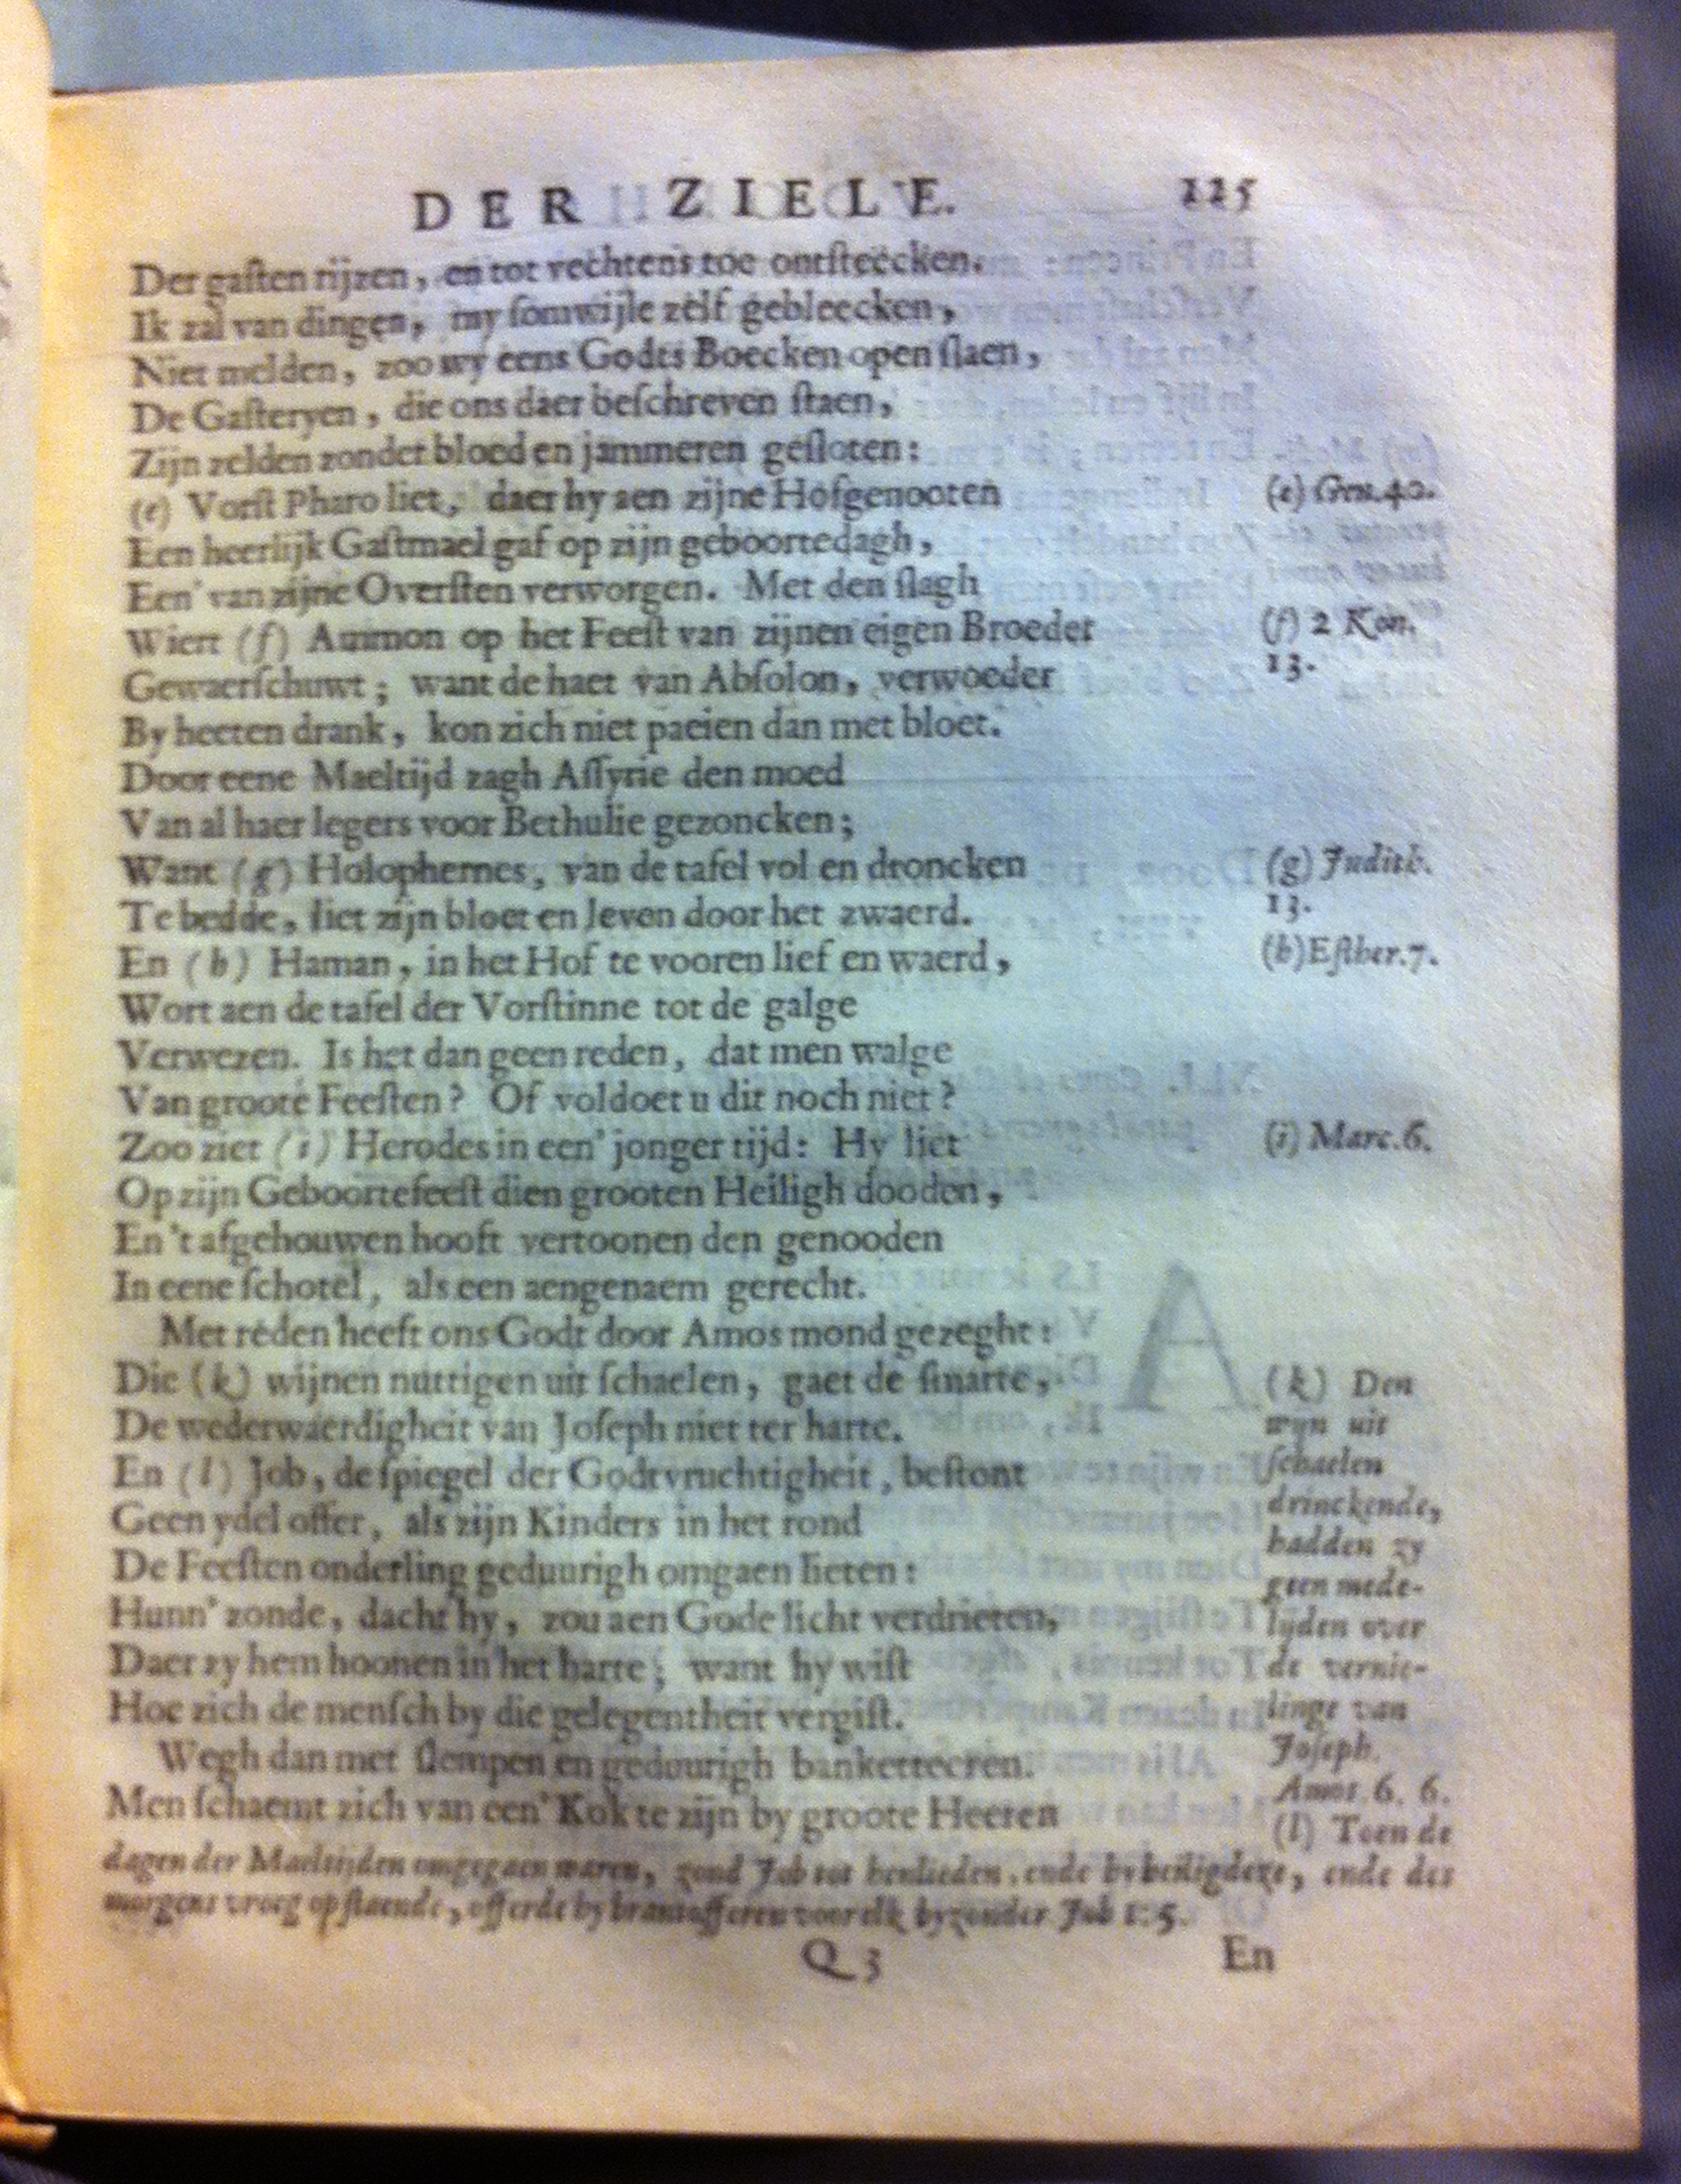 DER ZIELE. 125
Der gaſten rijzen, en tot vechtens toe ontſteecken.
Ik zal van dingen, my ſomwijle zelf gebleecken,
Niet melden, zoo wy eens Godts Boecken open ſlaen,
De Gaſteryen, die ons daer beſchreven ſtaen,
Zijn zelden zonder bloed en jammeren geſloten:
(e) Vorſt Pharo liet, daer hy aen zijne Hofgenooten
(e) Gen. 40.
Een heerlijk Gaſtmael gaf op zijn geboortedagh,
Een' van zijne Overſten verworgen. Met den ſlagh
Wiert (f) Ammon op het Feeſt van zijnen eigen Broeder
(f) 2 Kon.
13.
Gewaerſchuwt; want de haet van Abſolon, verwoeder
By heeten drank, kon zich niet paeien dan met bloet.
Door eene Maeltijd zagh Aſſyrie den moed
Van al haer legers voor Bethulie gezoncken;
Want (g) Holophernes, van de tafel vol en droncken
(g) Judith.
13.
Te bedde, liet zijn bloet en leven door het zwaerd.
En (h) Haman, in het Hof te vooren lief en waerd,
(h) Eſther. 7.
Wort aen de tafel der Vorſtinne tot de galge
Verwezen. Is het dan geen reden, dat men walge
Van groote Feeſten? Of voldoet u dit noch niet?
Zoo ziet (i) Herodes in een' jonger tijd: Hy liet
(i) Marc. 6.
Op zijn Geboortefeeſt dien grooten Heiligh dooden,
En 't afgehouwen hooft vertoonen den genooden
In eene ſchotel, als een aengenaem gerecht.
Met reden heeft ons Godt door Amos mond gezeght:
Die (k) wijnen nuttigen uit ſchaelen, gaet de ſmarte,
De wederwaerdigheit van Joſeph niet ter harte.
En (l) Job, de ſpiegel der Godtvruchtigheit, beſtont
Geen ydel offer, als zijn Kinders in het rond
De Feeſten onderling geduurigh omgaen lieten:
Hunn' zonde, dacht hy, zou aen Gode licht verdrieten,
Daer zy hem hoonen in het harte; want hy wiſt
Hoe zich de menſch by die gelegentheit vergiſt.
Wegh dan met ſlempen en gedourigh banketteeren.
Men ſchaemt zich van een' Kok te zijn by groote Heeren
(k) Den
wyn uit
ſchaelen
drinckende,
hadden zy
geen mede-
lijden over
de vernie-
linge van
Joſeph.
Amos. 6. 6.
(l) Toen de
dagen der Maeltijden omgegaen waren, zond Job tot henlieden, ende hy heiligdeze, ende des
morgens vroeg opſtaende, offerde hy brantofferen voor elk byzonder. Job 1: 5.
Q 3
En